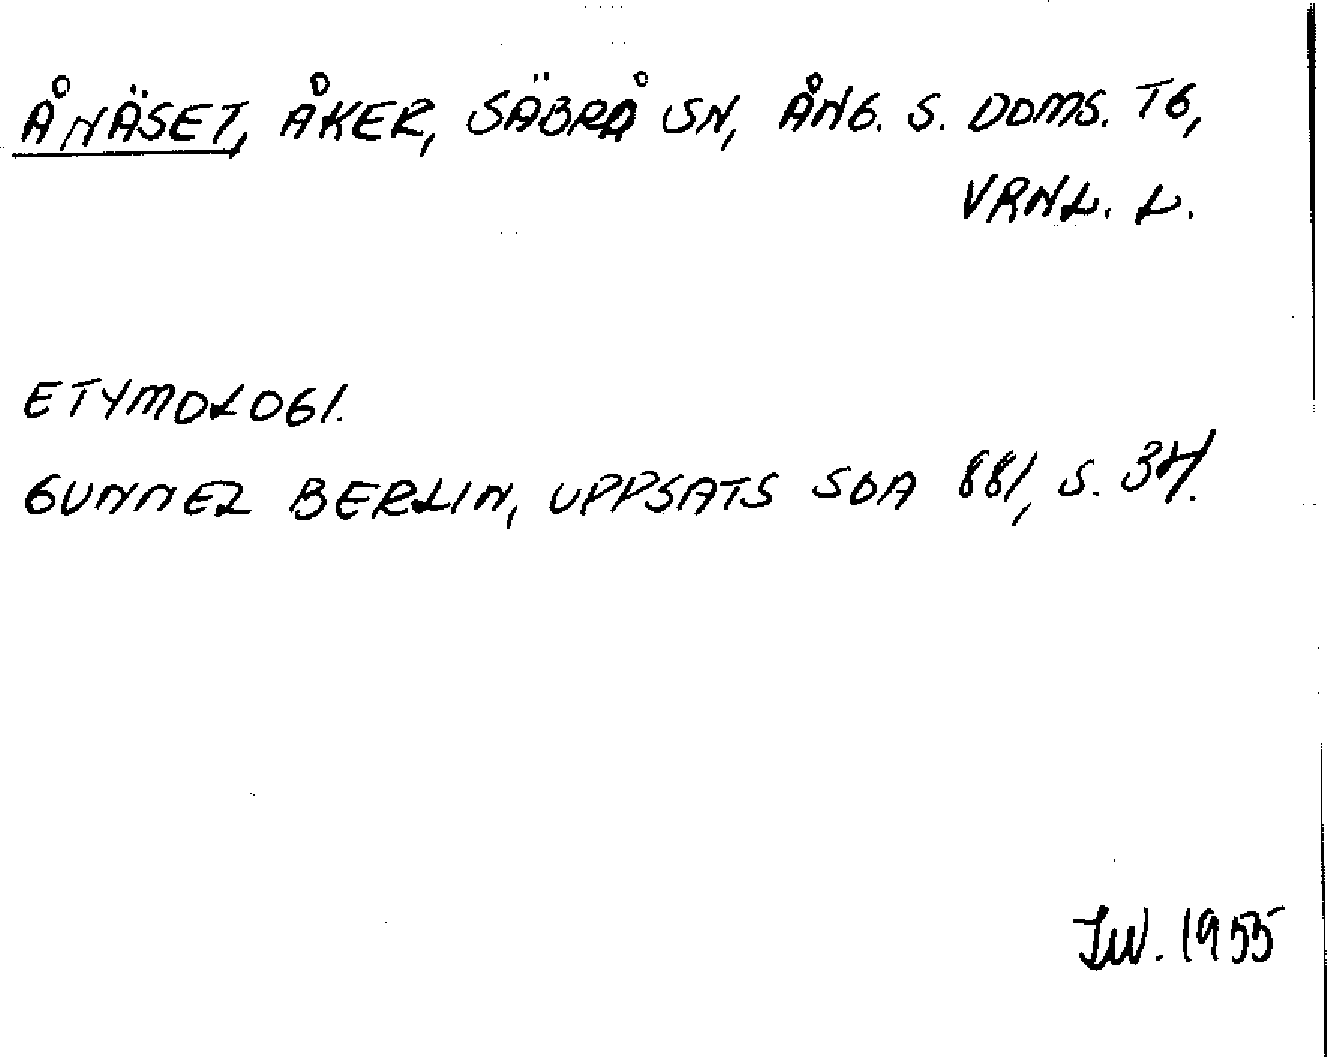 ÅNÄSET, ÅKER, SÄBRÅ SN, ÅNG. S. DOMS. TG,
VRNL. L.
ETYMOLOGI.
GUNNEL BERLIN, UPPSATS SOA 881, S. 34.
1955